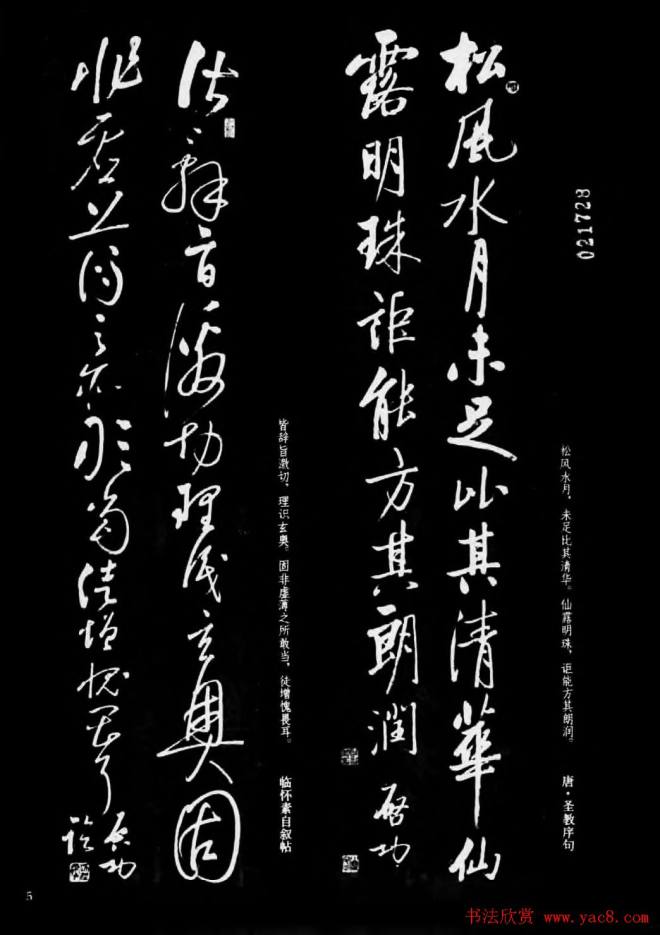 021728
松风水月，未足比其清华。仙露明珠，讵能方其朗润。 唐·圣教序句
松風水月未足比其清華仙
露明珠詎能方其朗潤 啓功
皆辞旨激切，理识玄奥。固非虚薄之所敢当，徒增愧畏耳。 临怀素自叙帖
皆辞旨激切理识玄奥固
非虚薄之所敢当徒增愧畏耳 启功
临
5
书法欣赏 www.yac8.com